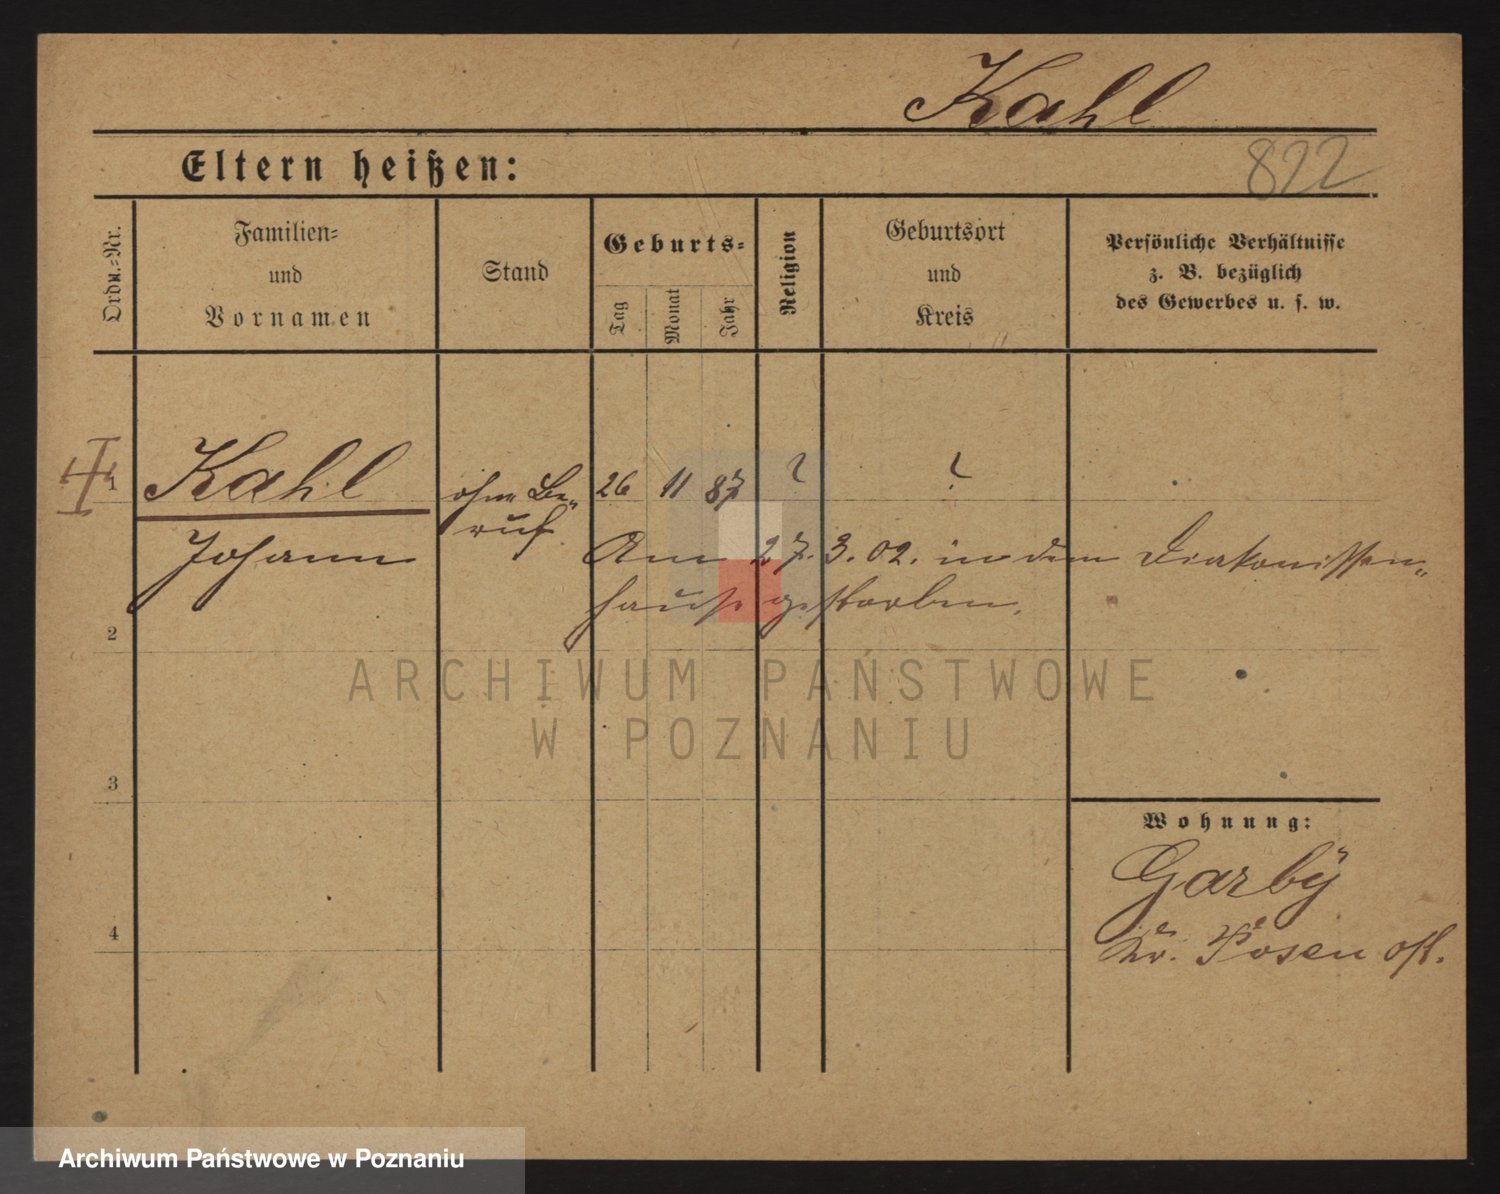 Kahl
Eltern heißen:
822
Ordn.-Nr.
Familien-
und
Vornamen
Stand
Geburts-
Tag
Monat
Jahr
Religion
Geburtsort
und
Kreis
Persönliche Verhältnisse
z. B. bezüglich
des Gewerbes u. s. w.
1
Kahl
ohne Be-
ruf
26 11 87 ? ?
Johann
Am 27. 3. 02. in dem Diakonissen-
hause gestorben.
2
ARCHIWUM PAŃSTWOWE
W POZNANIU
3
Wohnung:
Garby
Kr. Posen ost.
4
Archiwum Państwowe w Poznaniu